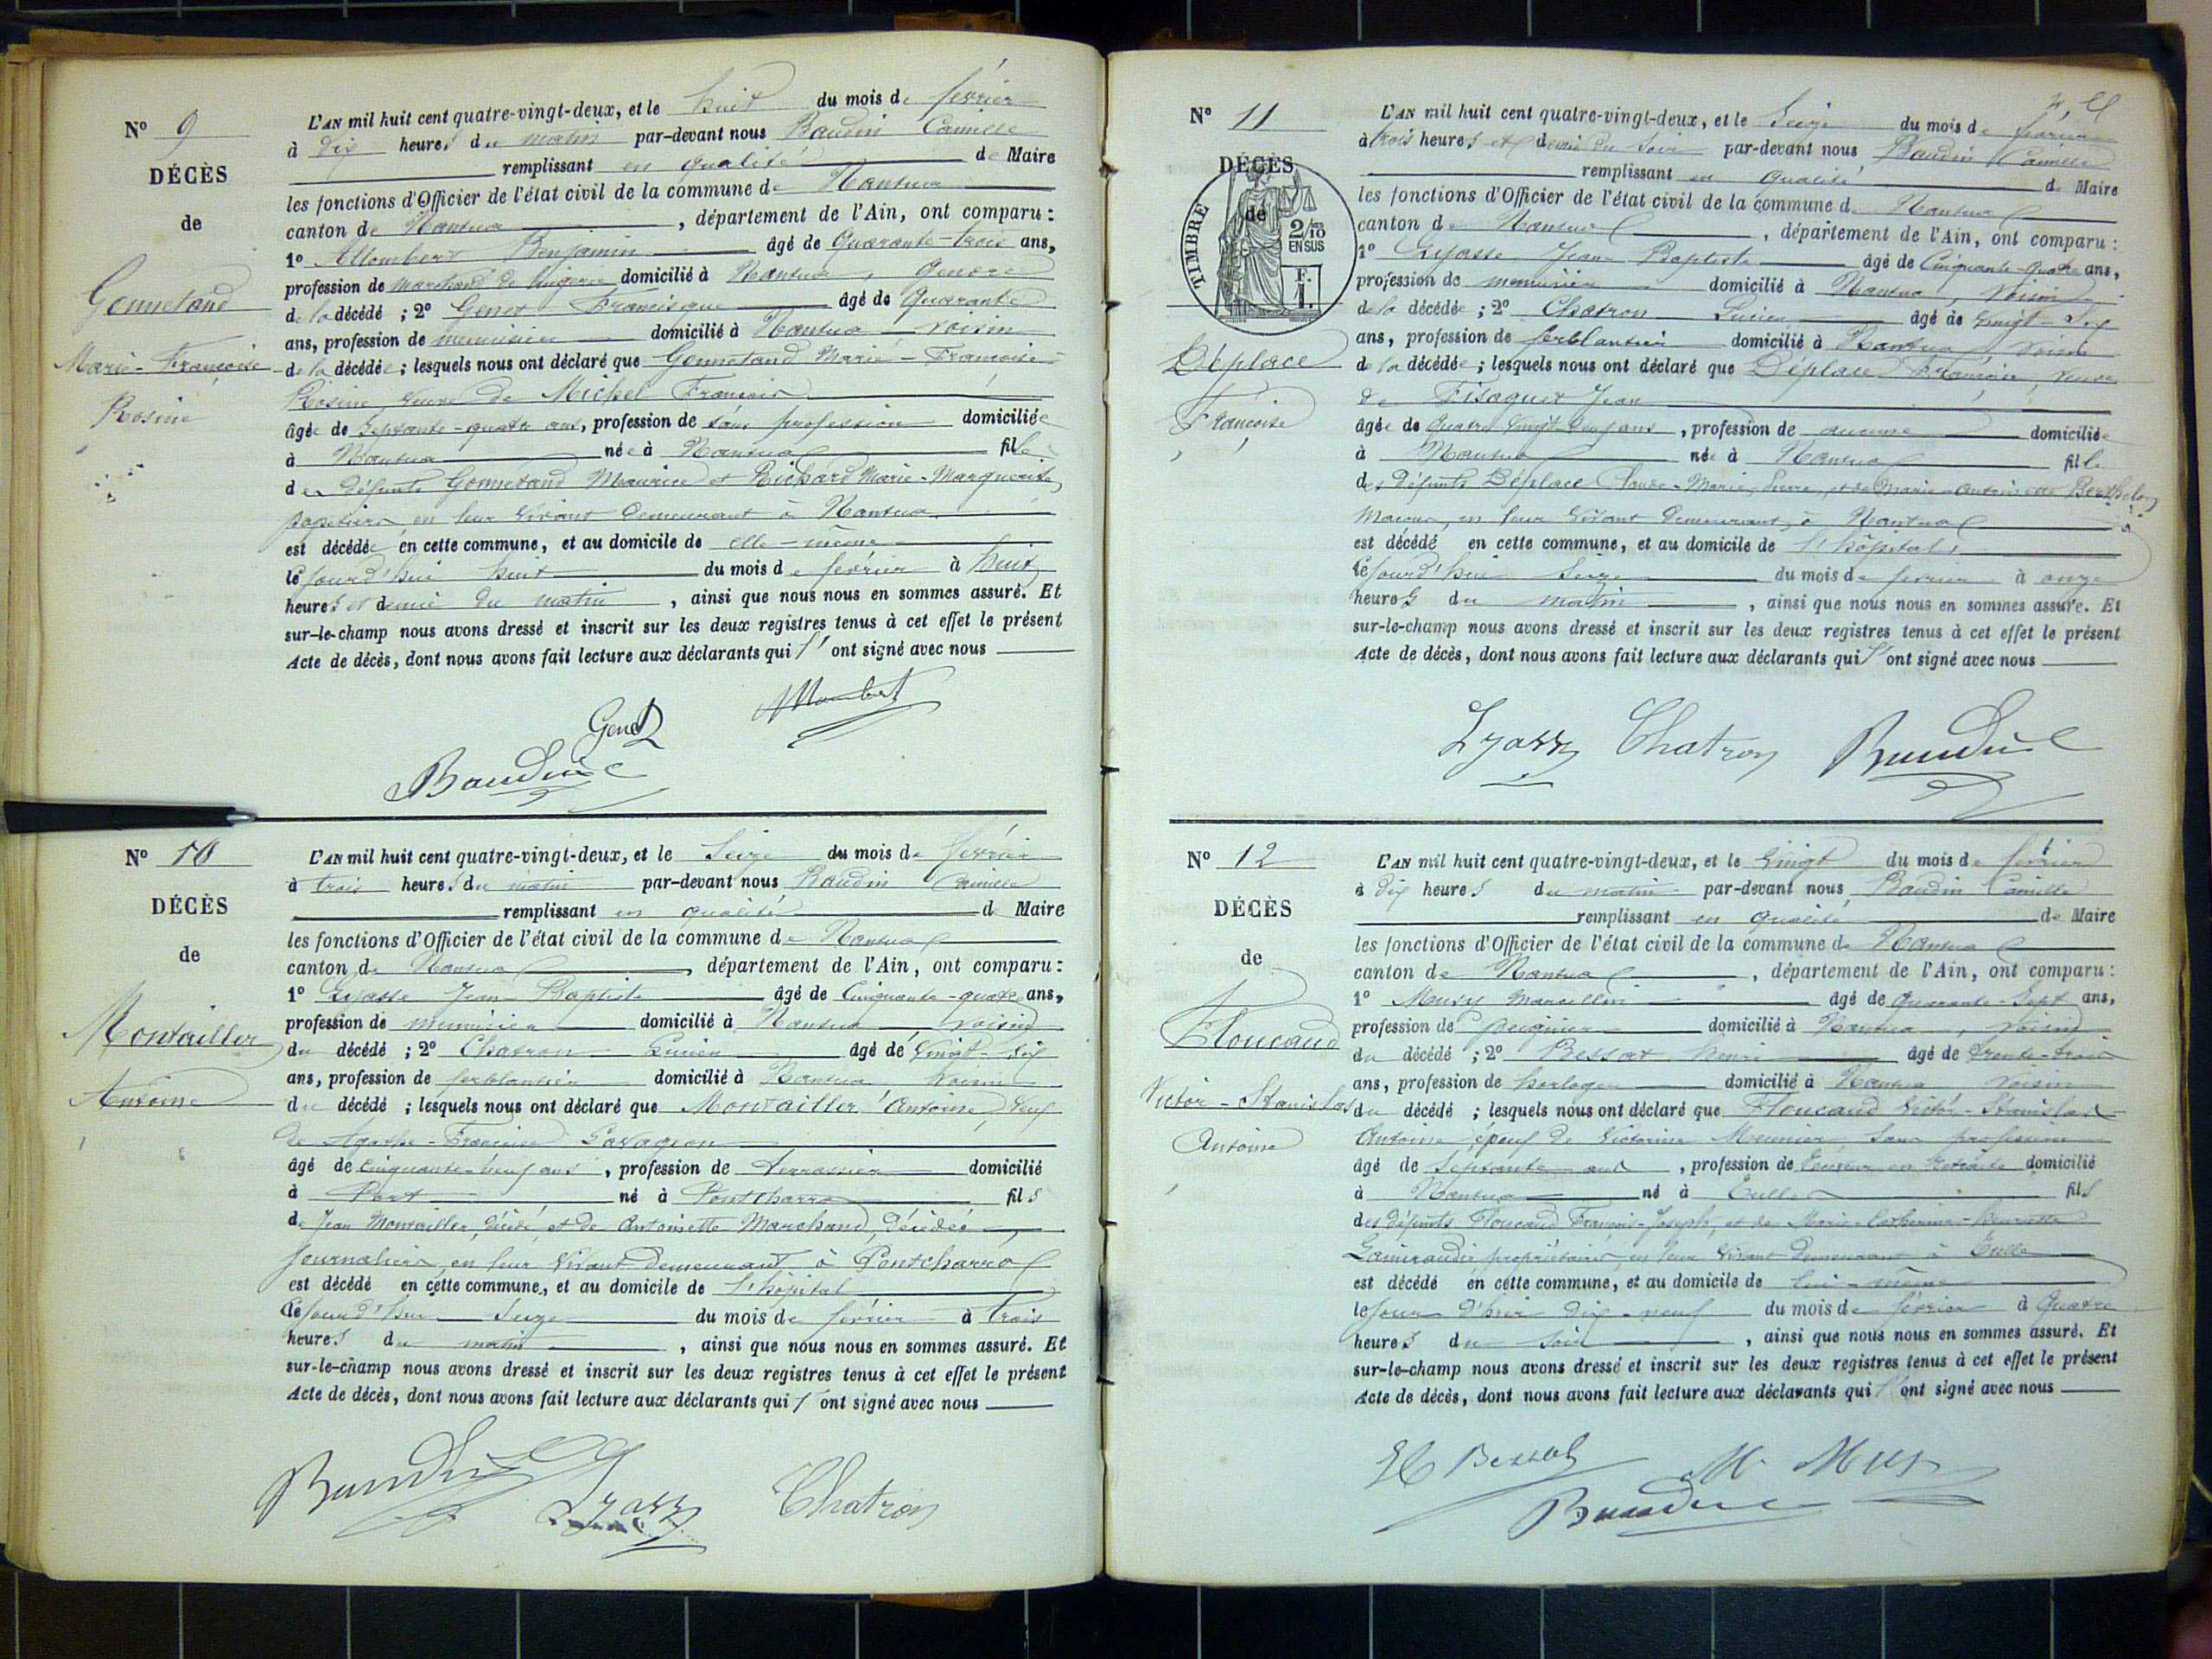 N° 9
DÉCÈS
de
Gonnetand
Marie-Françoise
Rosine
L'AN mil huit cent quatre-vingt-deux, et le huit du mois de février
à dix heures du matin par-devant nous Baudin Camille
remplissant en qualité de Maire
les fonctions d'Officier de l'état civil de la commune de Nantua
canton de Nantua, département de l'Ain, ont comparu :
1° Allombert Benjamin âgé de Quarante-trois ans,
profession de marchand de lingerie domicilié à Nantua, Gendre
de la décédé ; 2° Genet Francisque âgé de Quarante
ans, profession de menuisier domicilié à Nantua Voisin
de la décédée ; lesquels nous ont déclaré que Gonnetand Marie-Françoise
Rosine, veuve de Michel François
âgée de Septante-quatre ans, profession de sans profession domiciliée
à Nantua née à Nantua fille
des défunts Gonnetand Maurice et Richard Marie-Marguerite,
papetiers en leur vivant demeurant à Nantua
est décédée en cette commune, et au domicile de elle-même
cejourd'hui huit du mois de février à huit
heures et demie du matin, ainsi que nous nous en sommes assuré. Et
sur-le-champ nous avons dressé et inscrit sur les deux registres tenus à cet effet le présent
Acte de décès, dont nous avons fait lecture aux déclarants qui l'ont signé avec nous
Genet
Baudin C
N° 10
DÉCÈS
de
Montailler
Antoine
L'AN mil huit cent quatre-vingt-deux, et le Seize du mois de février
à trois heures du matin par-devant nous Baudin Camille
remplissant en qualité d Maire
les fonctions d'Officier de l'état civil de la commune de Nantua
canton de Nantua, département de l'Ain, ont comparu :
1° Jean-Baptiste âgé de Cinquante-quatre ans,
profession de menuisier domicilié à Nantua voisin
du décédé ; 2° Chatron Lucien âgé de Vingt-six
ans, profession de ferblantier domicilié à Nantua Voisin
du décédé ; lesquels nous ont déclaré que Montailler Antoine, Veuf
de Agathe-Françoise
âgé de Cinquante-neuf ans, profession de Terrassier domicilié
à Port né à Pontcharra fils
de Jean Montailler, décédé, et de Antoinette Marchand, décédée
journaliers en leur Vivant demeurant à Pontcharra
est décédé en cette commune, et au domicile de l'hôpital
cejourd'hui Seize du mois de février à trois
heures du matin, ainsi que nous nous en sommes assuré. Et
sur-le-champ nous avons dressé et inscrit sur les deux registres tenus à cet effet le présent
Acte de décès, dont nous avons fait lecture aux déclarants qui l'ont signé avec nous
Baudin C
Chatron
N° 11
DÉCÈS
de
TIMBRE
2/10
EN SUS
Déplace
Françoise
L'AN mil huit cent quatre-vingt-deux, et le Seize du mois de février
à trois heures et demie du soir par-devant nous Baudin Camille
remplissant en qualité de Maire
les fonctions d'Officier de l'état civil de la commune de Nantua
canton de Nantua, département de l'Ain, ont comparu :
1° Jean-Baptiste âgé de Cinquante-Quatre ans,
profession de menuisier domicilié à Nantua, Voisin
de la décédée ; 2° Chatron Lucien âgé de Vingt-Six
ans, profession de ferblantier domicilié à Nantua Voisin
de la décédée ; lesquels nous ont déclaré que Déplace Françoise, veuve
de Jean
âgée de Quatre Vingt Deux ans, profession de aucune domiciliée
à Nantua née à Nantua fille
des défunts Déplace Claude-Marie et de Marie-Antoinette
Maçons, en leur Vivant demeurant, à Nantua
est décédé en cette commune, et au domicile de l'hôpital,
cejourd'hui Seize du mois de février à onze
heures du matin, ainsi que nous nous en sommes assuré. Et
sur-le-champ nous avons dressé et inscrit sur les deux registres tenus à cet effet le présent
Acte de décès, dont nous avons fait lecture aux déclarants qui l'ont signé avec nous
Chatron Baudin C
N° 12
DÉCÈS
de
Floucaud
Victor-Stanislas
Antoine
L'AN mil huit cent quatre-vingt-deux, et le Vingt du mois de février
à dix heures du matin par-devant nous Baudin Camille
remplissant en qualité de Maire
les fonctions d'Officier de l'état civil de la commune de Nantua
canton de Nantua, département de l'Ain, ont comparu :
1° Musy Marcellin âgé de Quarante-Sept ans,
profession de peignier domicilié à Nantua, voisin
du décédé ; 2° Bessat Henri âgé de trente-trois
ans, profession de horloger domicilié à Nantua Voisin
du décédé ; lesquels nous ont déclaré que Floucaud Victor-Stanislas
Antoine, époux de Victorine Meunier Sans profession
âgé de Septante ans, profession de en Retraite domicilié
à Nantua né à Tulle fils
des défunts Floucaud François-Joseph, et de Marie-Catherine-Henriette
propriétaires en leur Vivant demeurant à Tulle
est décédé en cette commune, et au domicile de lui-même
le jour d'hier dix-neuf du mois de février à Quatre
heures du soir, ainsi que nous nous en sommes assuré. Et
sur-le-champ nous avons dressé et inscrit sur les deux registres tenus à cet effet le présent
Acte de décès, dont nous avons fait lecture aux déclarants qui l'ont signé avec nous
H Bessat M. Musy
Baudin C